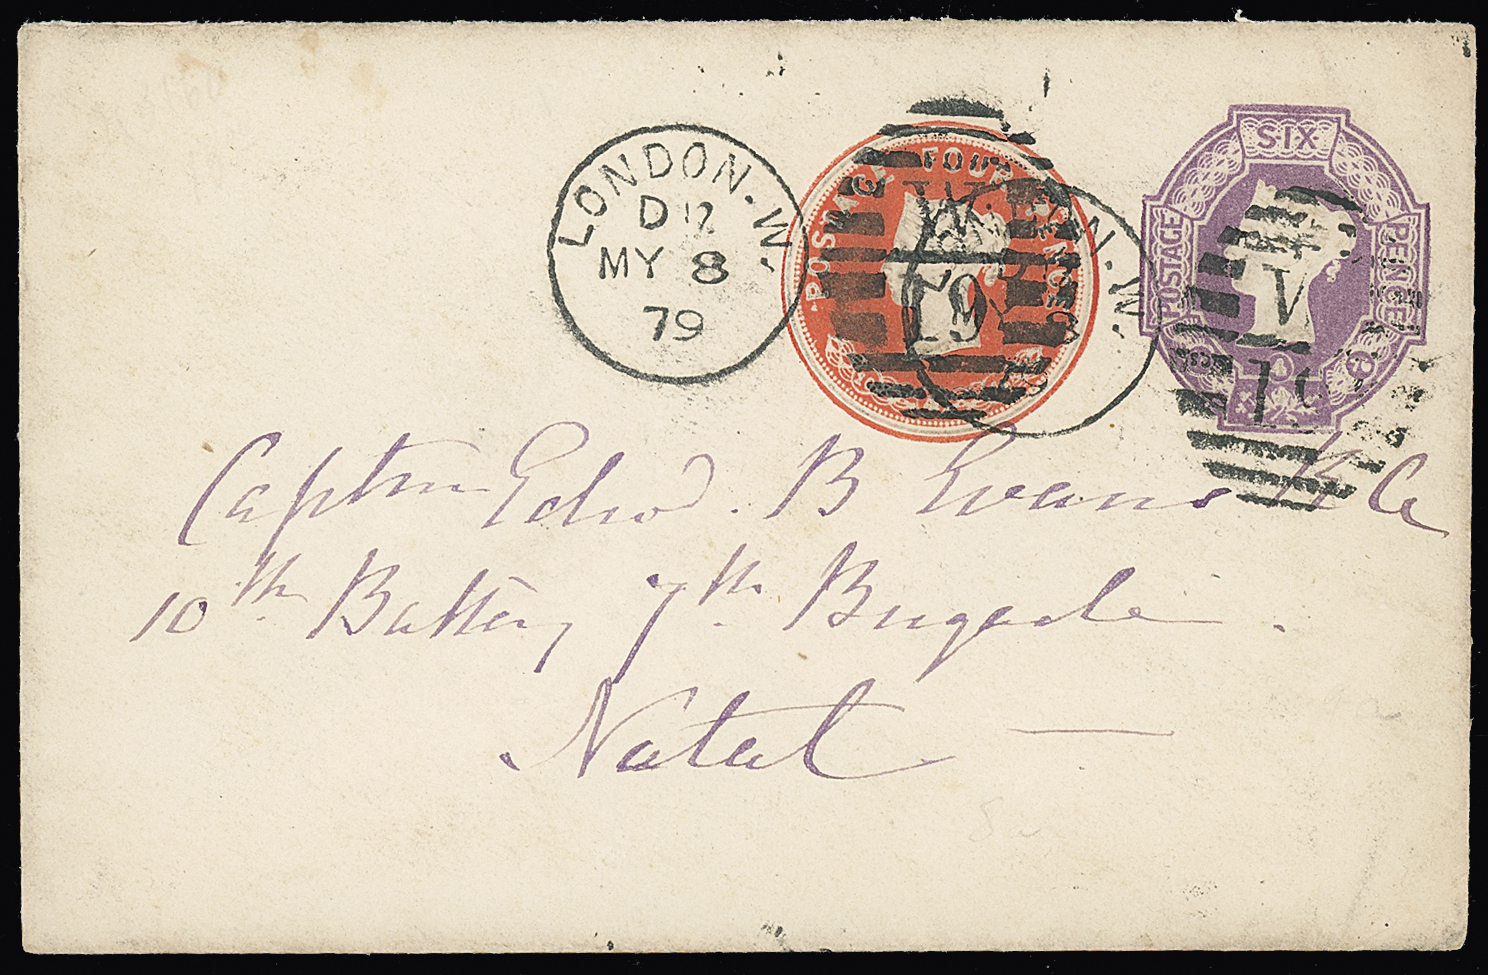 LONDON·W.
D 12
MY 8
79
POSTAGE FOUR PENCE
W.
19
N·W.
SIX
POSTAGE
PENCE
W
19
Captn Edwd. B Evans RA
10th. Battery 7th. Brigade.
Natal